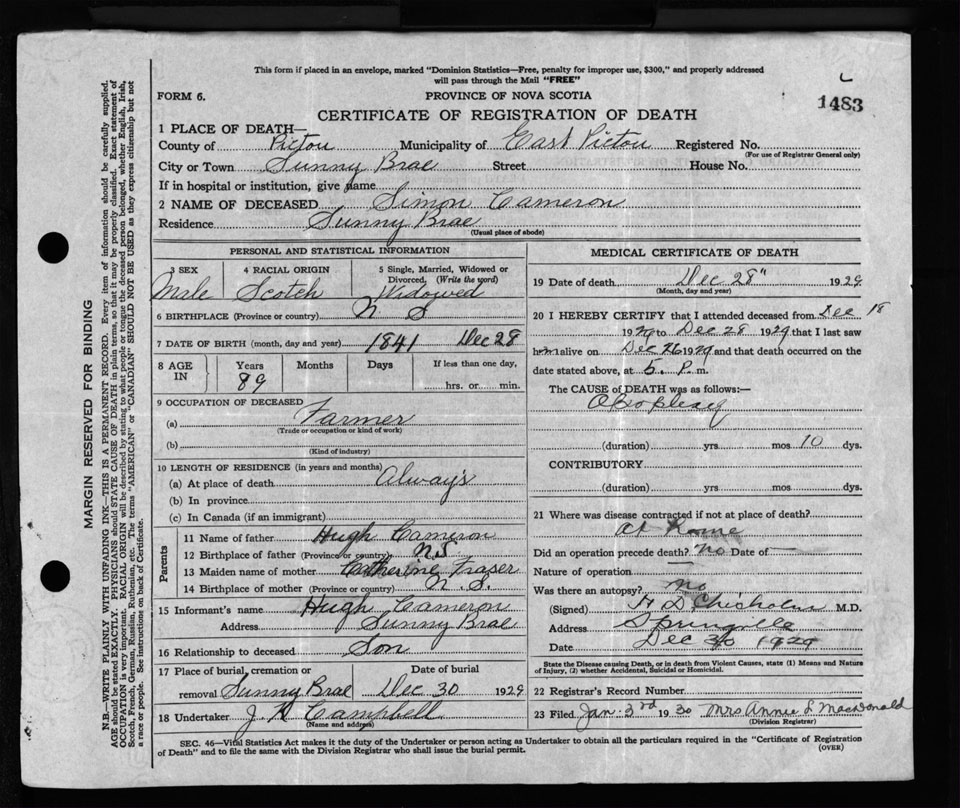 This form if placed in an envelope, marked "Dominion Statistics—Free, penalty for improper use, $300," and properly addressed
will pass through the Mail "FREE"
FORM 6.
PROVINCE OF NOVA SCOTIA
1483
CERTIFICATE OF REGISTRATION OF DEATH
1 PLACE OF DEATH—
County of Pictou Municipality of East Pictou Registered No.
(For use of Registrar General only)
City or Town Sunny Brae Street House No.
If in hospital or institution, give name
2 NAME OF DECEASED Simon Cameron
Residence Sunny Brae
(Usual place of abode)
PERSONAL AND STATISTICAL INFORMATION
3 SEX
Male
4 RACIAL ORIGIN
Scotch
5 Single, Married, Widowed or
Divorced, (Write the word)
Widowed
6 BIRTHPLACE (Province or country) N. S
7 DATE OF BIRTH (month, day and year) 1841 Dec 28
8 AGE
IN
Years
89
Months
Days
If less than one day,
hrs. or min.
9 OCCUPATION OF DECEASED
(a) Farmer
(Trade or occupation or kind of work)
(b)
(Kind of industry)
10 LENGTH OF RESIDENCE (in years and months)
(a) At place of death Always
(b) In province
(c) In Canada (if an immigrant)
Parents
11 Name of father Hugh Cameron
12 Birthplace of father (Province or country) N.S
13 Maiden name of mother Catherine Fraser
14 Birthplace of mother (Province or country) N. S.
15 Informant's name Hugh Cameron
Address Sunny Brae
16 Relationship to deceased Son
17 Place of burial, cremation or
removal Sunny Brae
Date of burial
Dec 30 1929
18 Undertaker J. Campbell
(Name and address)
MEDICAL CERTIFICATE OF DEATH
19 Date of death Dec 28" 1929
(Month, day and year)
20 I HEREBY CERTIFY that I attended deceased from Dec 18
1929 to Dec 28 1929 that I last saw
him alive on Dec 26 1929 and that death occurred on the
date stated above, at 5. P. m.
The CAUSE of DEATH was as follows:—
Apoplexy
(duration) yrs mos 10 dys.
CONTRIBUTORY
(duration) yrs. mos. dys.
21 Where was disease contracted if not at place of death?
At Home
Did an operation precede death? No Date of —
Nature of operation —
Was there an autopsy? no
(Signed) D Chisholm M.D.
Address Springville
Date Dec 30 1929
State the Disease causing Death, or in death from Violent Causes, state (1) Means and Nature
of Injury, (2) whether Accidental, Suicidal or Homicidal.
22 Registrar's Record Number
23 Filed Jan 3rd 1930 Mrs Annie L MacDonald
(Division Registrar)
SEC. 46—Vital Statistics Act makes it the duty of the Undertaker or person acting as Undertaker to obtain all the particulars required in the "Certificate of Registration
of Death" and to file the same with the Division Registrar who shall issue the burial permit.
(OVER)
MARGIN RESERVED FOR BINDING
N.B.—WRITE PLAINLY WITH UNFADING INK—THIS IS A PERMANENT RECORD. Every item of information should be carefully supplied.
AGE should be stated EXACTLY. PHYSICIANS should STATE CAUSE OF DEATH in plain terms, so that it may be properly classified. Exact statement of
OCCUPATION is very important. RACIAL ORIGIN will be described by stating to what people or tongue the deceased person belonged, whether English, Irish,
Scotch, French, German, Russian, Ruthenian, etc. The terms "AMERICAN" or "CANADIAN" SHOULD NOT BE USED as they express citizenship but not
a race or people. See instructions on back of Certificate.